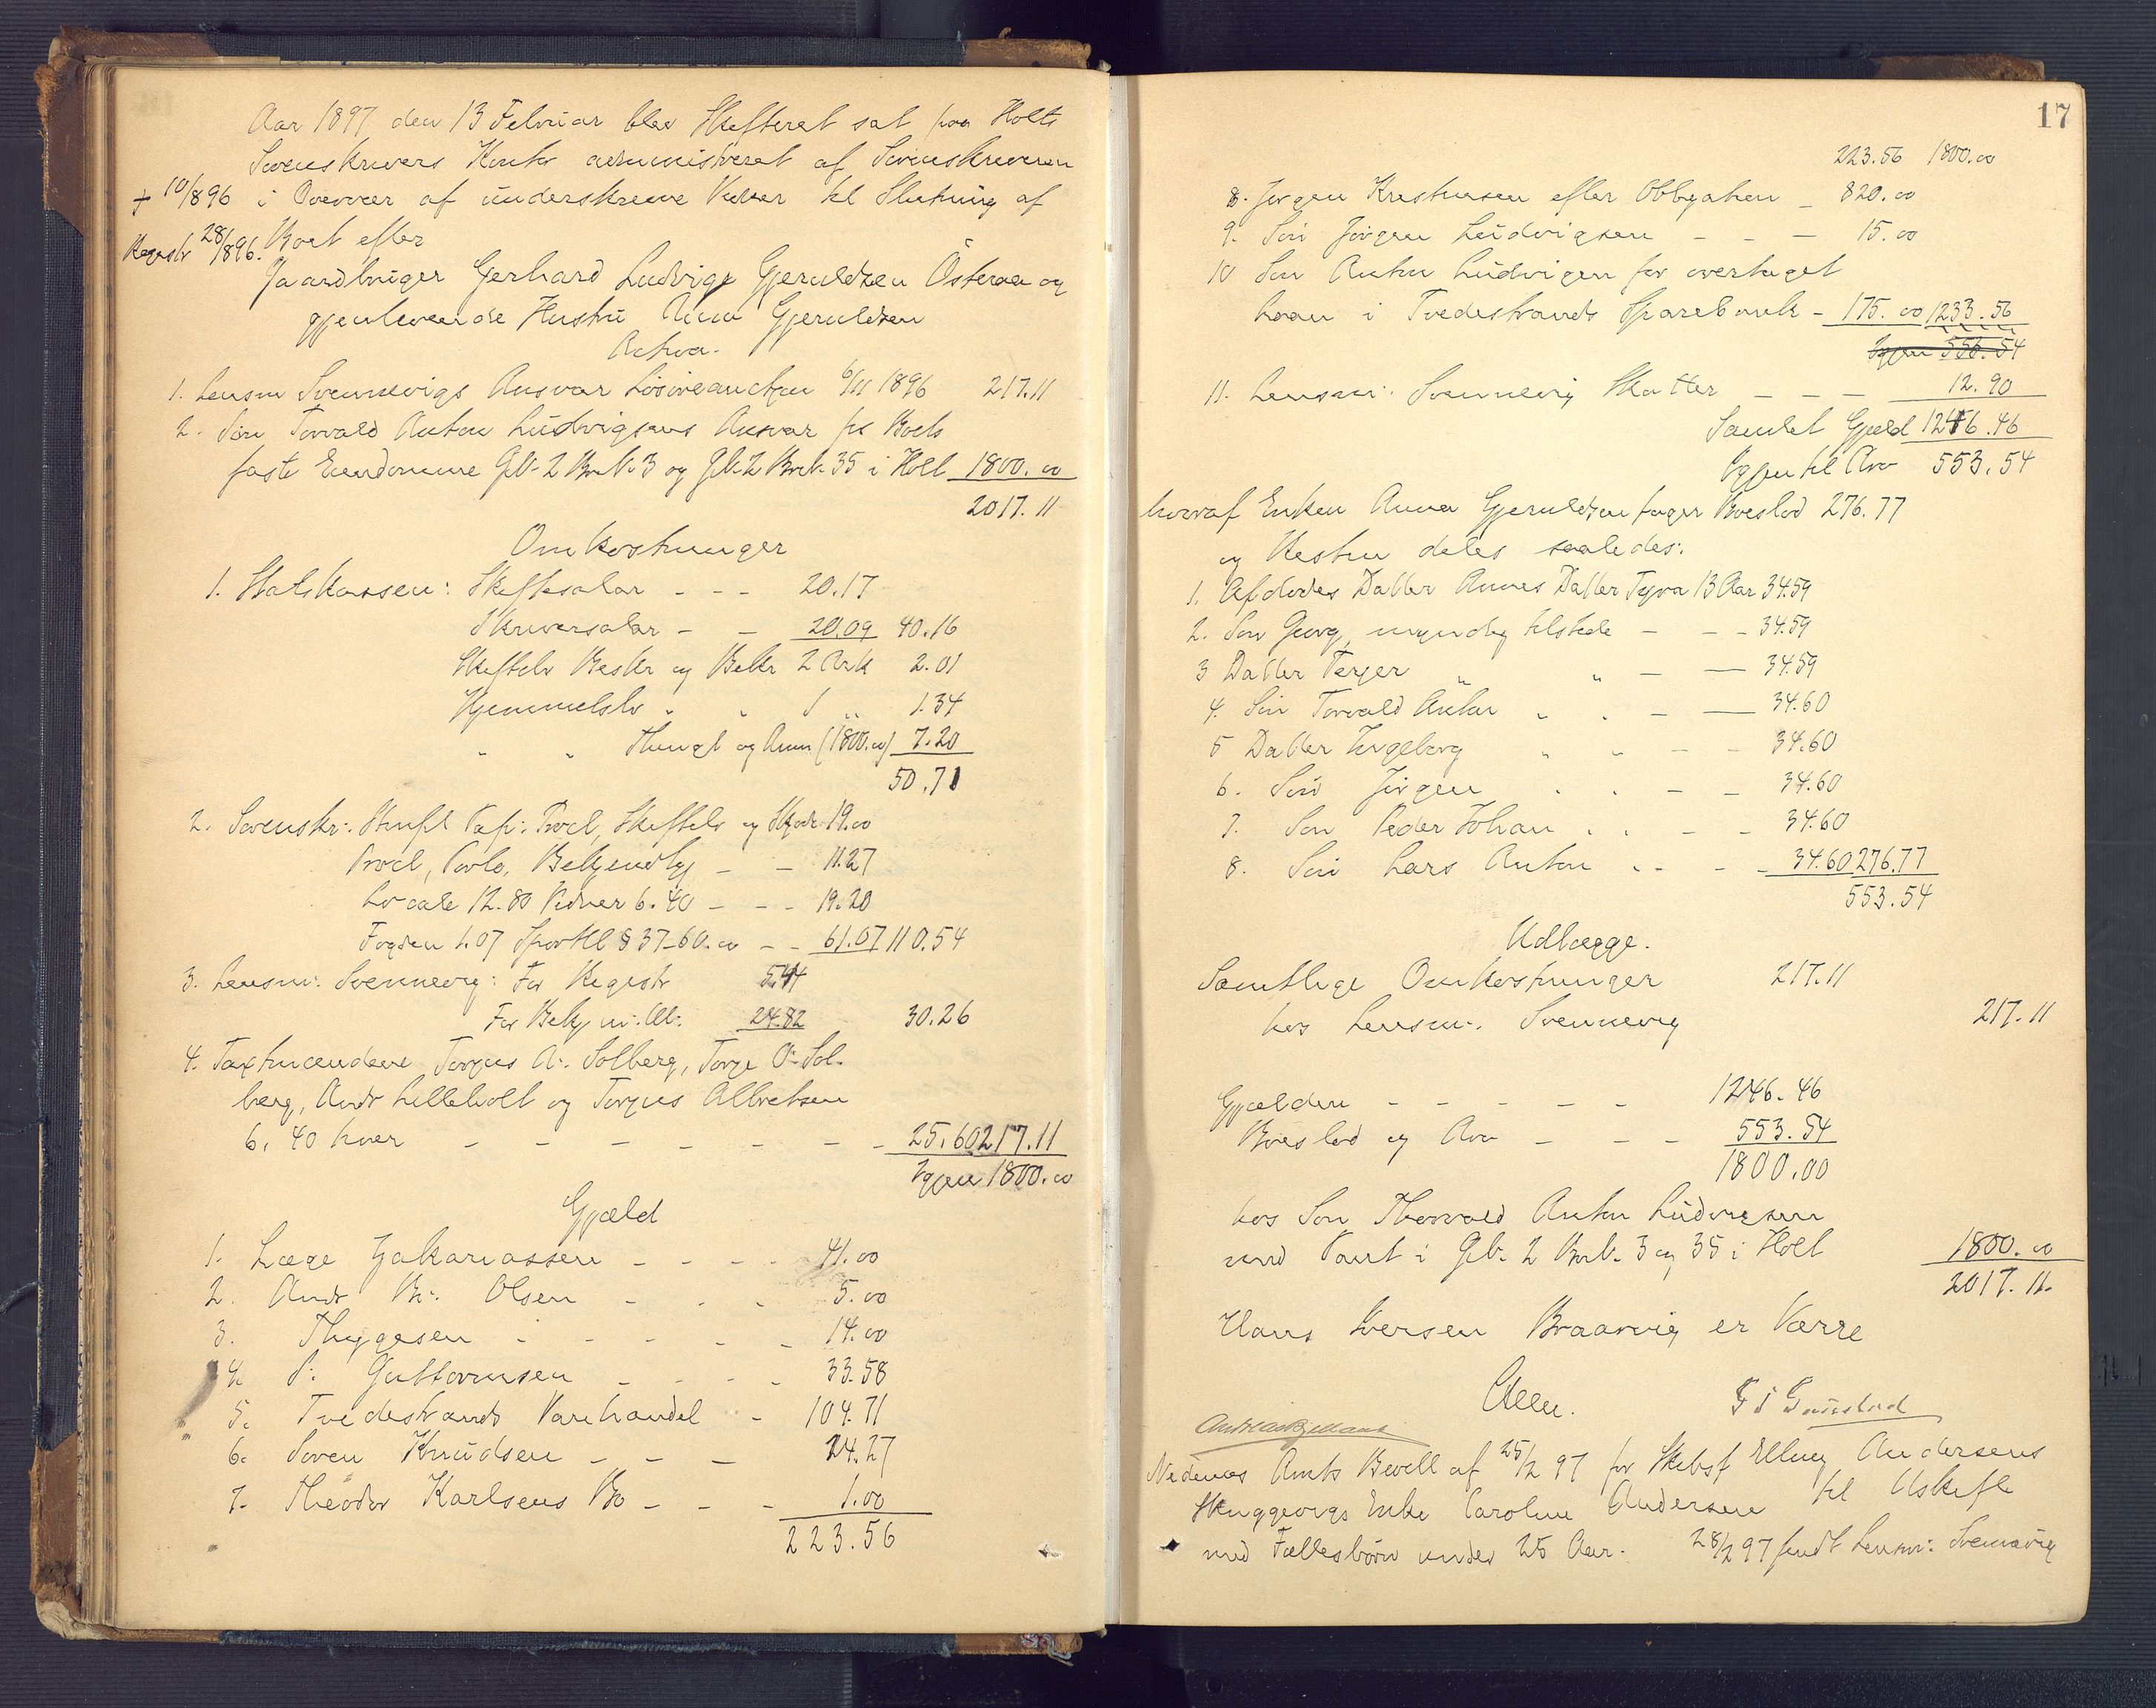 Aar 1897 den 13 Februar blev Skifteret sat paa Holts
Sorenskrivers Kontor administreret af Sorenskriveren
+ 10/8 96 i Overvær af underskrevne Vidner til Slutning af
Registr 28/8 96. Boet efter
Gaardbruger Gerhard Ludvig Gjeruldsen Østeraa og
gjenlevende Hustru Anna Gjeruldsen
Activa.
1. Lensm Svennevigs Ansvar Løsøreauction 6/11 1896 217.11
2. Søn Torvald Anton Ludvigsens Ansvar for Boets
faste Eiendomme Gb. 2 Brb. 3 og Gb. 2 Brb. 35 i Holt 1800.00
2017.11
Omkostninger
1. Statskassen: Skiftesalær - - - 20.17
Skriversalær - - 20.09 40.16
Skiftebr Beskr og Bekr 2 Ark 2.01
Hjemmelsbr " " 1 " 1.34
" " Thingl og Anm (1800.00) 7.20
50.71
2. Sorenskr: Stempl Papr: Procl, Skiftebr og Skjøde 19.00
Procl, Porto, Bekjendtg - - 11.27
Locale 12.80 Vidner 6.40 - - - 19.20
Fogden 1.07 Sportl § 37-60.00 - - 61.07 110.54
3. Lensm: Svennevig: For Registr 5.44
For Bekj m: Al: 24.82 30.26
4. Taxtmændene Torjus A: Solberg, Torje O: Sol-
berg, Andr Lilleholt og Torjus Albretsen
6.40 hver - - - - - - - 25.60 217.11
Igjen 1800.00
Gjæld
1. Læge Zakariassen - - - - 41.00
2. Andr B: Olsen - - - 5.00
3. Thygesen - - - - - 14.00
4. P: Guttormsen - - - - 33.58
5. Tvedestrands Varehandel - 104.71
6. Søren Knudsen - - - 24.27
7. Theodor Karlsens Bo - - - 1.00
223.56
17
223.56 1800.00
8. Jørgen Kristensen efter Obligation - 820.00
9. Søn Jørgen Ludvigsen - - - 15.00
10 Søn Anton Ludvigsen for overtaget
Laan i Tvedestrands Sparebank - 175.00 1233.56
Igjen 556.54
11. Lensm: Svennevig Skatter - - - 12.90
Samlet Gjæld 1246.46
Igjen til Arv 553.54
hvoraf Enken Anna Gjeruldsen tager Boeslod 276.77
og Resten deles saaledes:
1. Afdødes Datter Annes Datter Tyra 13 Aar 34.59
2. Søn Georg, myndig tilstede - - - 34.59
3 Datter Terjer " " - — 34.59
4. Søn Torvald Anton " " - — 34.60
5 Datter Ingeborg " " - - 34.60
6. Søn Jørgen " " - - 34.60
7. Søn Peder Johan " " - - 34.60
8. Søn Lars Anton " " - - 34.60 276.77
553.54
Udlægge.
Samtlige Omkostninger 217.11
hos Lensm: Svennevig 217.11
Gjælden - - - - - 1246.46
Boeslod og Arv - - - 553.54
1800.00
hos Søn Thorvald Anton Ludvigsen
med Pant i Gb. 2 Brb. 3 og 35 i Holt 1800.00
2017.11.
Hans Iversen Braarvig er Værge
F S Gaustad
Nedenes Amts Bevill af 25/2 97 for Skibsf Elling Andersens
Skuggevigs Enke Caroline Andersen til Uskifte
med Fællesbørn under 25 Aar. 28/2 97 sendt Lensm: Svennevig